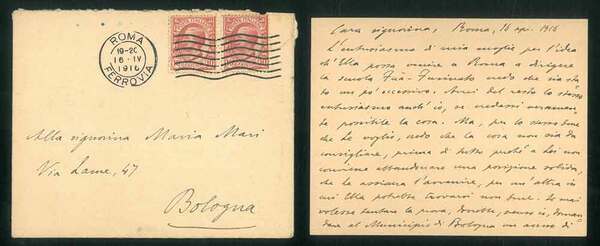 ROMA
19-20
16·IV
1916
FERROVIA
POSTE ITALIANE
POSTE ITALIANE
Alla signorina Maria Mari
Via Lame, 47
Bologna
Cara signorina, Roma, 16 apr. 1916
L'entusiasmo di mia moglie per l'idea
ch'Ella possa venire a Roma a dirigere
la scuola Fuà-Fusinato credo che sia sta
to un po' eccessivo. Anzi del resto lo stesso
entusiasmo anch'io, se vedessi veramen
te possibile la cosa. Ma, per lo stesso bene
che le voglio, credo che la cosa non sia da
consigliare, prima di tutto perché a Lei non
conviene abbandonare una posizione solida,
che le assicura l'avvenire, per un'altra in
cui Ella potrebbe trovarsi non bene. Se mai
volesse tentare la prova, dovrebbe, penso io, doman
dare al Municipio di Bologna un anno di